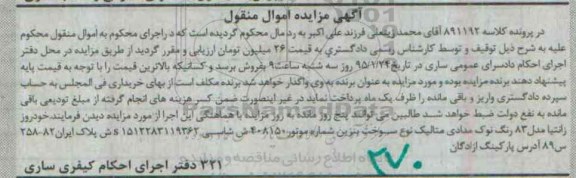 آگهی مزایده اموال منقول
در پرونده کلاسه ۸۹۱۱۹۲ آقای محمد زینعلی فرزند علی اکبر به رد مال محکوم گردیده است که در اجرای محکوم به اموال منقول محکوم
علیه به شرح ذیل توقیف و توسط کارشناس رسمی دادگستری به قیمت ۲۶ میلیون تومان ارزیابی و مقرر گردید از طریق مزایده در محل دفتر
اجرای احکام دادسرای عمومی ساری در تاریخ ۹۵/۱/۲۴ روز سه شنبه ساعت ۹ بفروش برسد و کسانیکه بالاترین قیمت را با توجه به قیمت پایه
پیشنهاد دهند برنده مزایده بوده و مورد مزایده به عنوان برنده به وی واگذار خواهد شد برنده مکلف است از بهای خریداری فی المجلس به حساب
سپرده دادگستری واریز و باقی مانده را ظرف یک ماه پرداخت نماید در غیر اینصورت ضمن کسر هزینه های انجام گرفته از مبلغ تودیعی باقی
مانده به نفع دولت ضبط خواهد شد طالبین می توانند پنج روز مانده به روز مزایده با هماهنگی این اجرا از مورد مزایده دیدن فرمایند خودروز
زانتیا مدل ۸۳ رنگ نوک مدادی متالیک نوع سوخت بنزین شماره موتور ۴۰۸۱۵۰ ش شاسی s۱۵۱۲۲۸۳۱۱۹۳۶۲ ش پلاک ایران ۸۲-۲۵۸
س ۸۹ آدرس پارکینگ آزادگان
۳۲۱ دفتر اجرای احکام کیفری ساری
۳۷۰